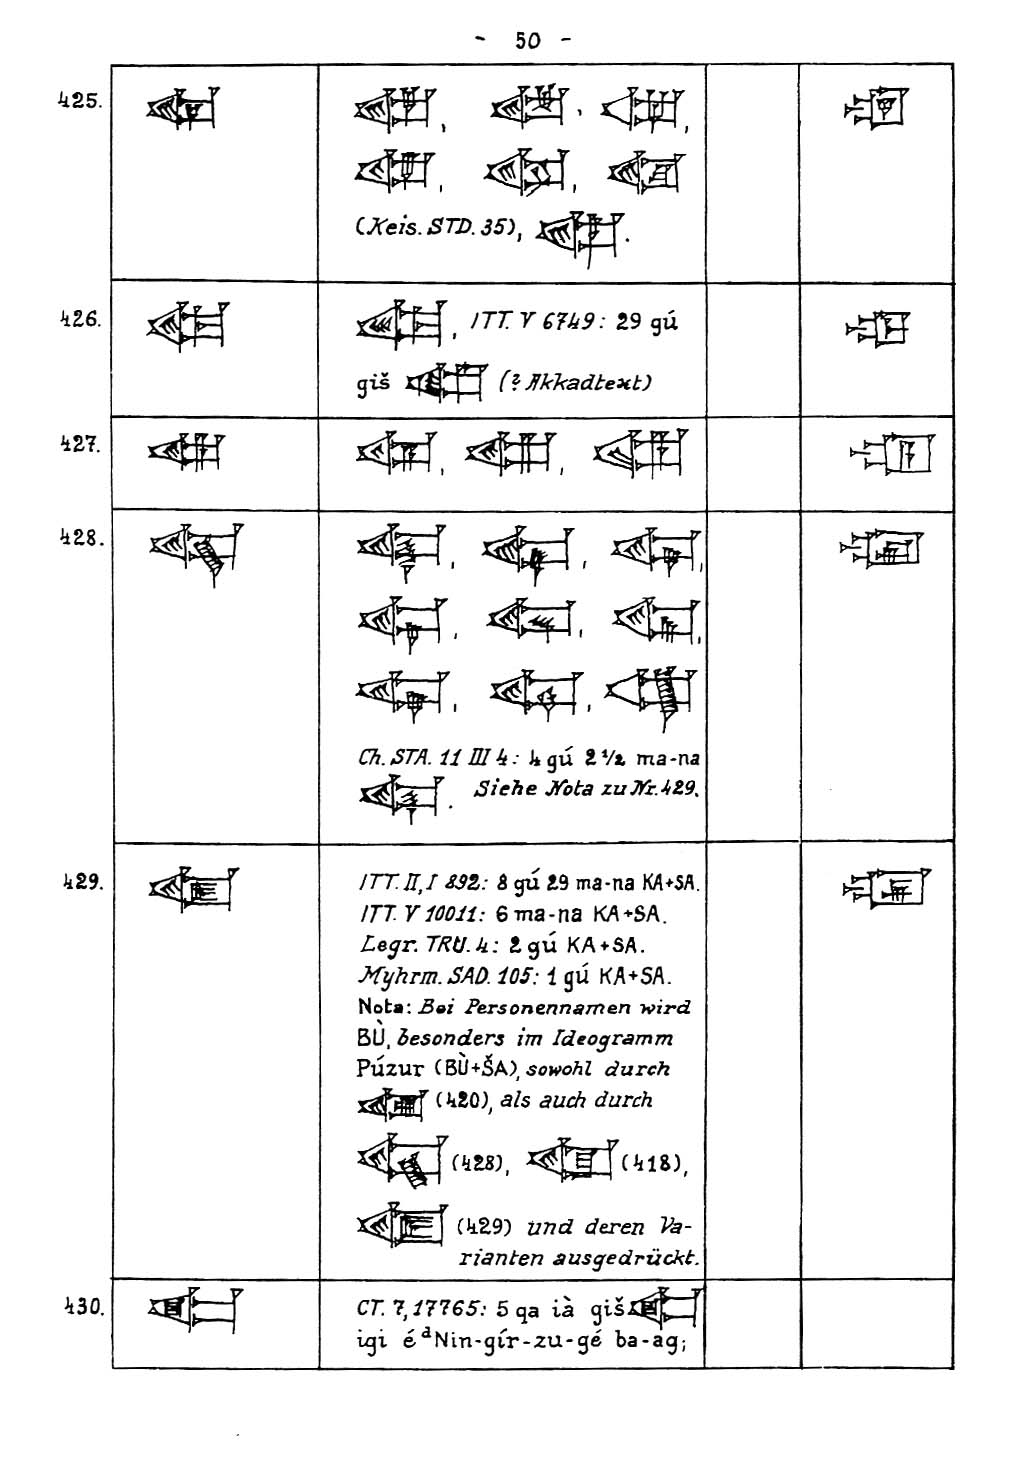 - 50 -
425.
(Keis. STD. 35),
426.
, ITT. V 6749: 29 gú
giš (? Akkadtext)
427.
428.
Ch. STA. 11 III 4: 4 gú 2 1/2 ma-na
. Siehe Nota zu Nr. 429.
429.
ITT. II, I 892: 8 gú 29 ma-na KA+SA.
ITT. V 10011: 6 ma-na KA+SA.
Legr. TRU. 4: 2 gú KA+SA.
Myhrm. SAD. 105: 1 gú KA+SA.
Nota: Bei Personennamen wird
BÙ, besonders im Ideogramm
Púzur (BÙ+ŠA), sowohl durch
(420), als auch durch
(428), (418),
(429) und deren Va-
rianten ausgedrückt.
430.
CT. 7, 17765: 5 qa ià giš
igi é ᵈNin-gír-zu-gé ba-ag;